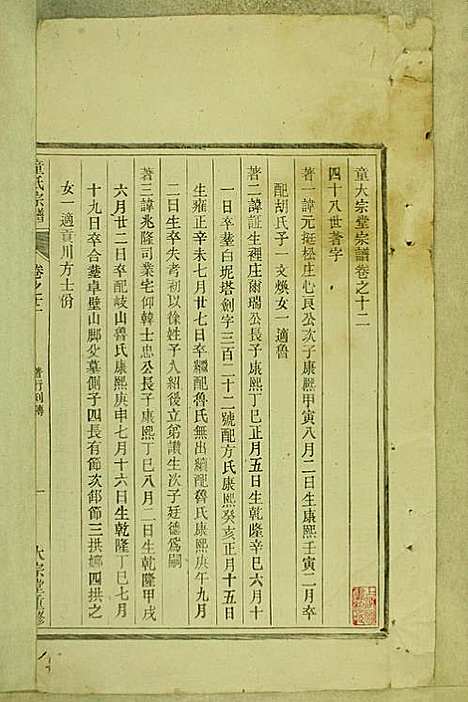 童大宗堂宗譜卷之十二
四十八世著字
著一諱元挺松庄心良公次子康熙甲寅八月二日生康熙壬寅二月卒
配胡氏子一文煥女一適魯
著二諱証生裡庄爾瑞公長子康熙丁巳正月五日生乾隆辛巳六月十
一日卒葬白坭塔劍字三百二十二號配方氏康熙癸亥正月十五日
生雍正辛未七月廿七日卒繼配魯氏無出續配魯氏康熙庚午九月
二日生卒失考初以徐姓子入紹後立弟讚生次子廷德為嗣
著三諱兆隆司業宅仰韓士忠公長子康熙丁巳八月二日生乾隆甲戌
六月廿二日卒配岐山魯氏康熙庚申七月十六日生乾隆丁巳七月
十九日卒合葬卓壁山腳父墓側子四長有節次邰節三拱 四拱之
女一適貢川方士份
童氏宗譜
卷之十二
著行列傳
一
大宗堂重修